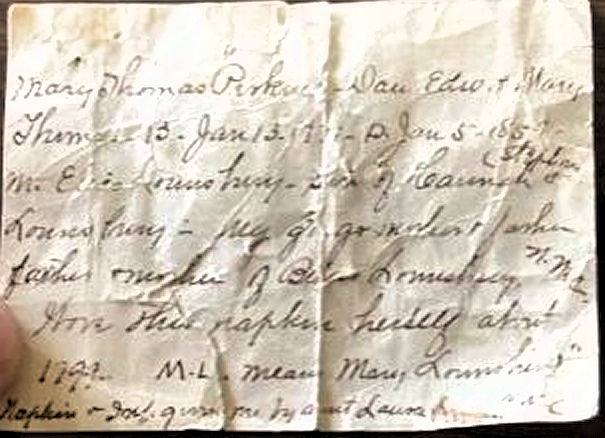 Mary Thomas Perkins - Dau Edw. & Mary
Thomas - B - Jan 13 - D. Jan 5 - 185
(Stephen
m. Lounsbury - son of Hannah &
Lounsbury - My gr. go mother & father
father & mother of Lounsbury
Wove this napkin herself about
1799 - M-L. means Mary Lounsbury"
Napkin & Inf. given me by aunt Laura